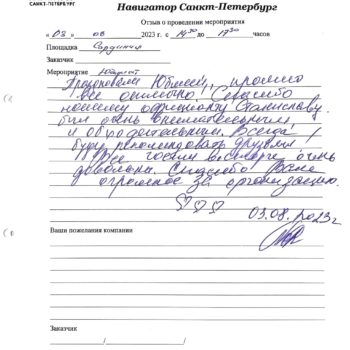 САНКТ-ПЕТЕРБУРГ
Навигатор Санкт-Петербург
Отзыв о проведении мероприятия
« 03 » 08 2023 г. с 14:30 до 17:30 часов
Площадка Сардиния
Заказчик
Мероприятие Юбилей
Праздновали Юбилей, прошло
все отлично! Спасибо
нашему официанту Станиславу.
был очень внимательным
и обходительным. Всегда
буду рекомендовать друзьям!
Все гости остались очень
довольны. Спасибо Вам
огромное за организацию.
03.08.2023г
Ваши пожелания компании
Заказчик